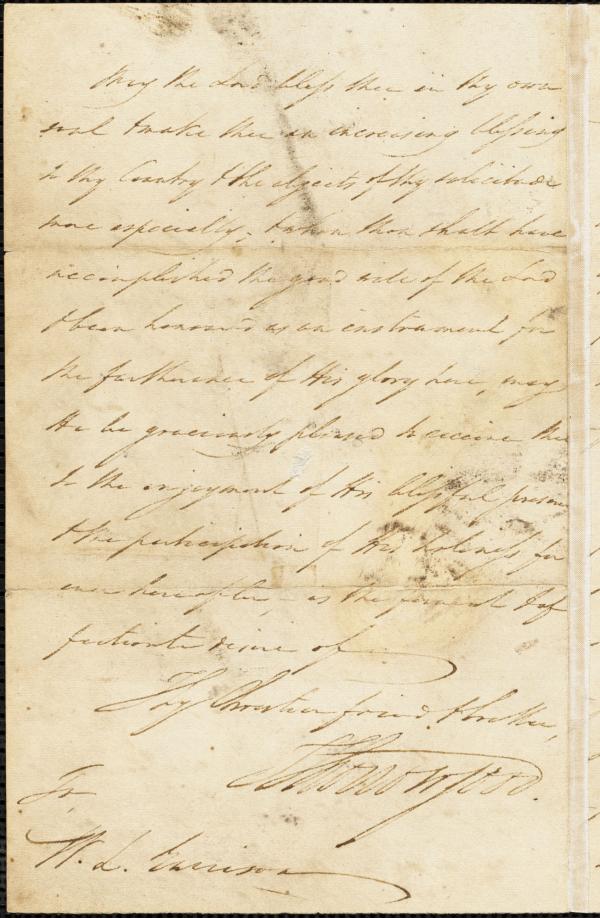 May the Lord bless thee in thy own
soul & make thee an increasing blessing
to thy Country & the objects of thy solicitude
more especially; & when thou shalt have
accomplished the good will of the Lord
& been honoured as an instrument for
the furtherance of His glory here, may
He be graciously pleased to receive thee
to the enjoyment of His blissful presence
& the participation of His holiness for
ever hereafter, – is the fervent & af
fectionate desire of
Thy Christian friend & brother,
To,
W. L. Garrison